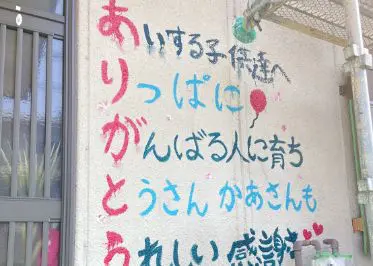 あいする子供達へ
りっぱに
がんばる人に育ち
とうさん かあさんも
うれしい 感謝さ